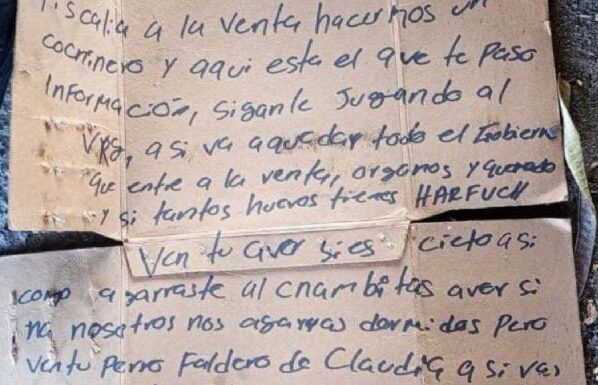 Fiscalia a la venta hacermos un
cocrinero y aqui esta el que te paso
información, siganle Jugando al
VRG, a si va a quedar todo el Gobierno
que entre a la venta, organos y quemado
y si tantos huevos tienes HARFUCH
Ven tu aver si es cieto asi
como agarraste al cnambitas aver si
na nosotros nos agarras dormidos Pero
ven tu Perro Faldero de Claudia a si vas